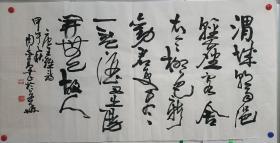 渭城朝雨浥
輕塵客舍
青青柳色新
勸君更盡
一杯酒西出陽
關無故人
唐王維詩
甲午秋